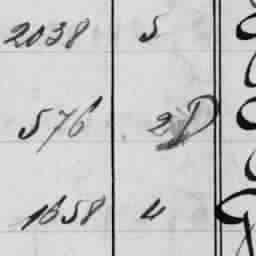 2038 5
576 2D
1658 4